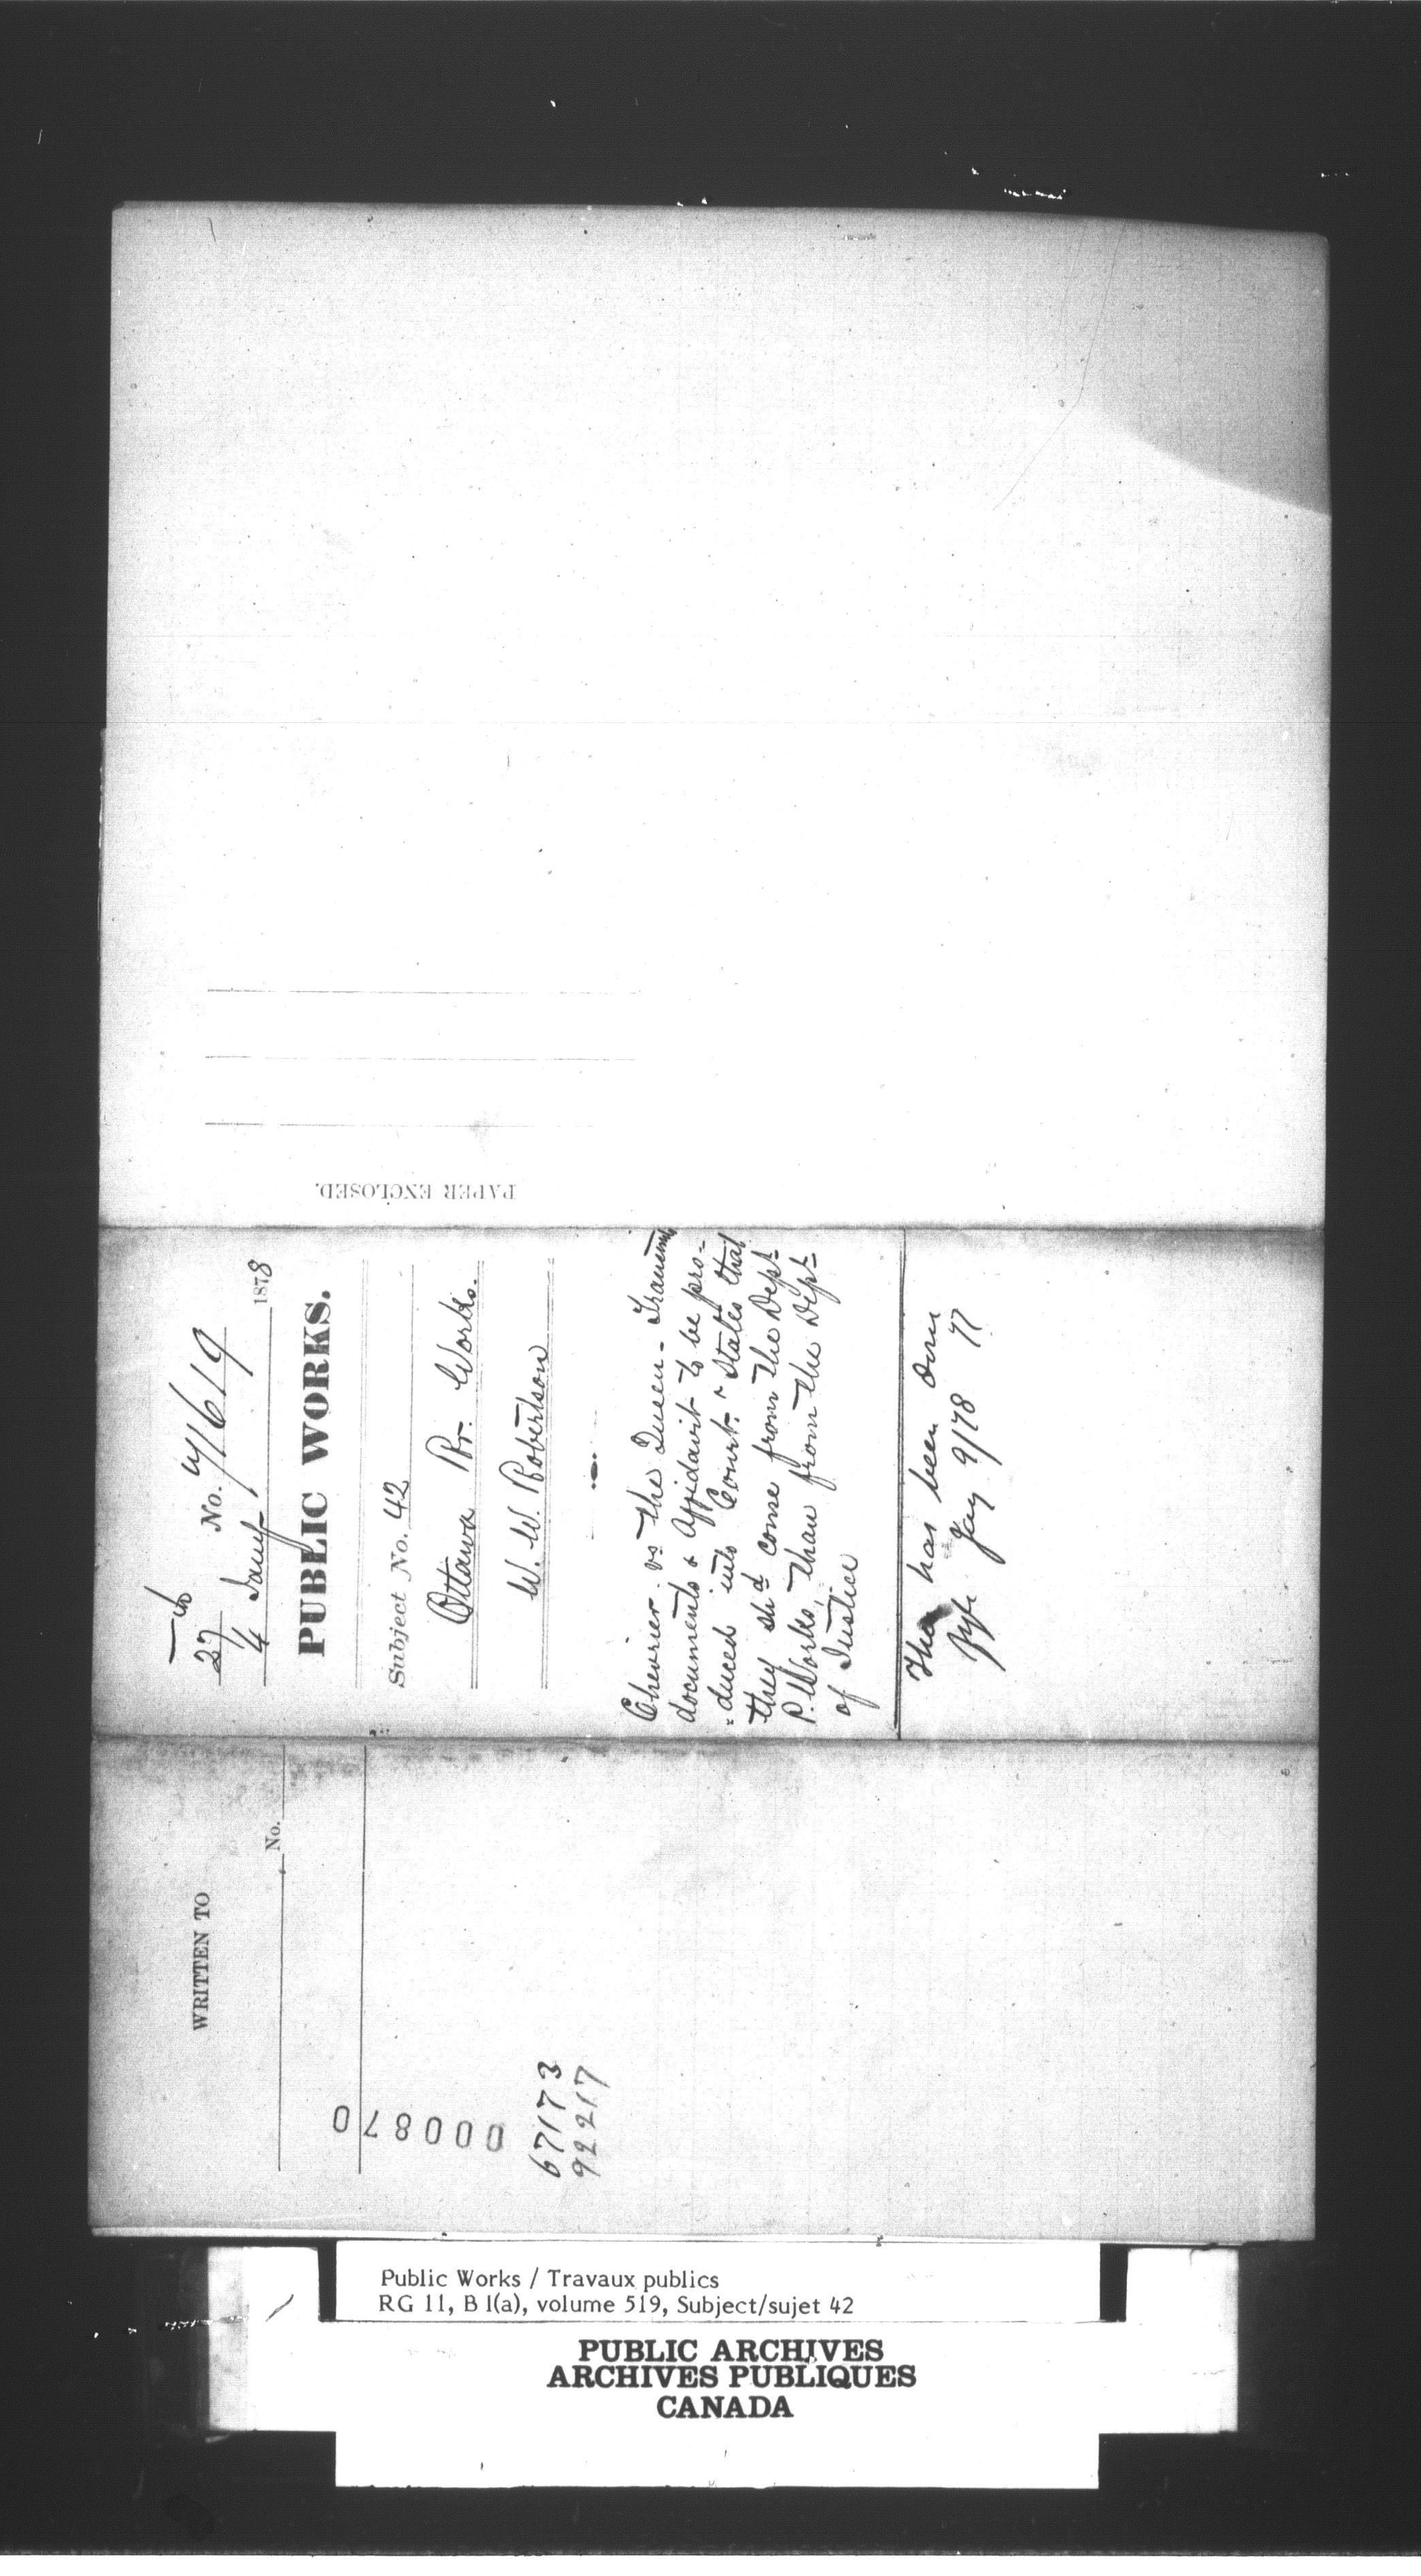 PAPER ENCLOSED.
27
No. 71619
4 Jany 1878
PUBLIC WORKS.
Subject No. 42
Ottawa Rr. Works.
W. W. Robertson
Chevrier vs the Queen - Transmits
documents & Affidavit to be pro-
=duced into Court & States that
they shd come from the Dept
P. Works, than from the Dept
of Justice
This has been done
Jany 9/78 77
WRITTEN TO
No.
000870
67173
92217
Public Works / Travaux publics
RG 11, B 1(a), volume 519, Subject/sujet 42
PUBLIC ARCHIVES
ARCHIVES PUBLIQUES
CANADA